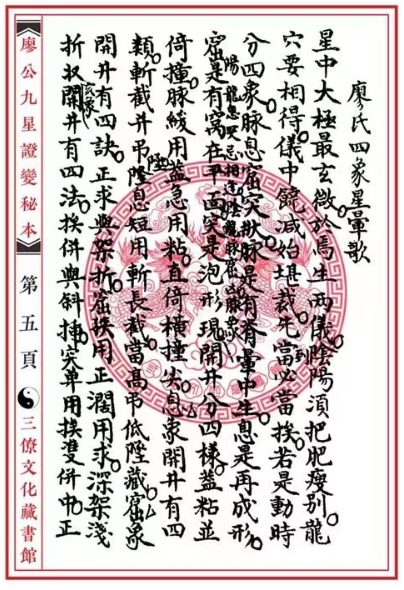 廖氏四象星暈歌
星中大極最玄微於焉生兩儀陰陽須把肥瘦別龍
穴要相得儀中饒減始堪裁死當必當挨若是動時
到
分四象脉息窟突脉是有脊暈中生息是再成形
陽龍息突忌相逢陰龍脉窟
窟是有窩在平面突是泡形現開井分四樣蓋粘並
倚撞脉緩用蓋急用粘直倚橫撞尖息象開井有四
類斬截井吊墜息短用斬長截當高吊低墜藏窟象
開井有四訣正求與架折窟狹用正濶用求深架淺
突象
折開井有四法挨併與斜揷突單用挨雙併中正
廖公九星證變秘本
第五頁
三僚文化藏書館